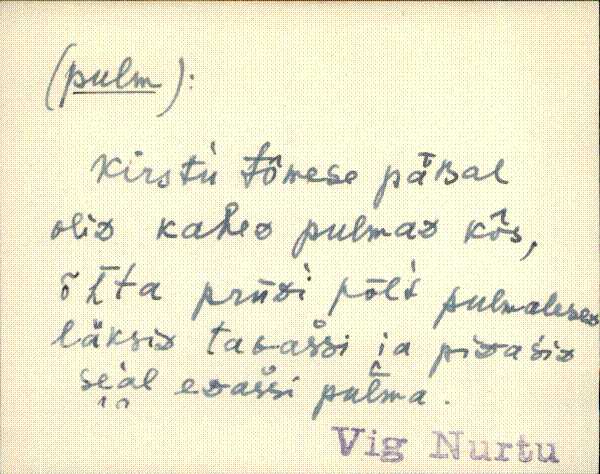 (pulm):
kirstù tȏmese pǟʙal
oliᴅ kaheᴅ pulmaᴅ kȏs,
ȭtta prūᴅi pōli pulmaleseᴅ
läksiᴅ taʙašši ja piᴅašiᴅ
seäl eᴅašši pulma.
Vig Nurtu